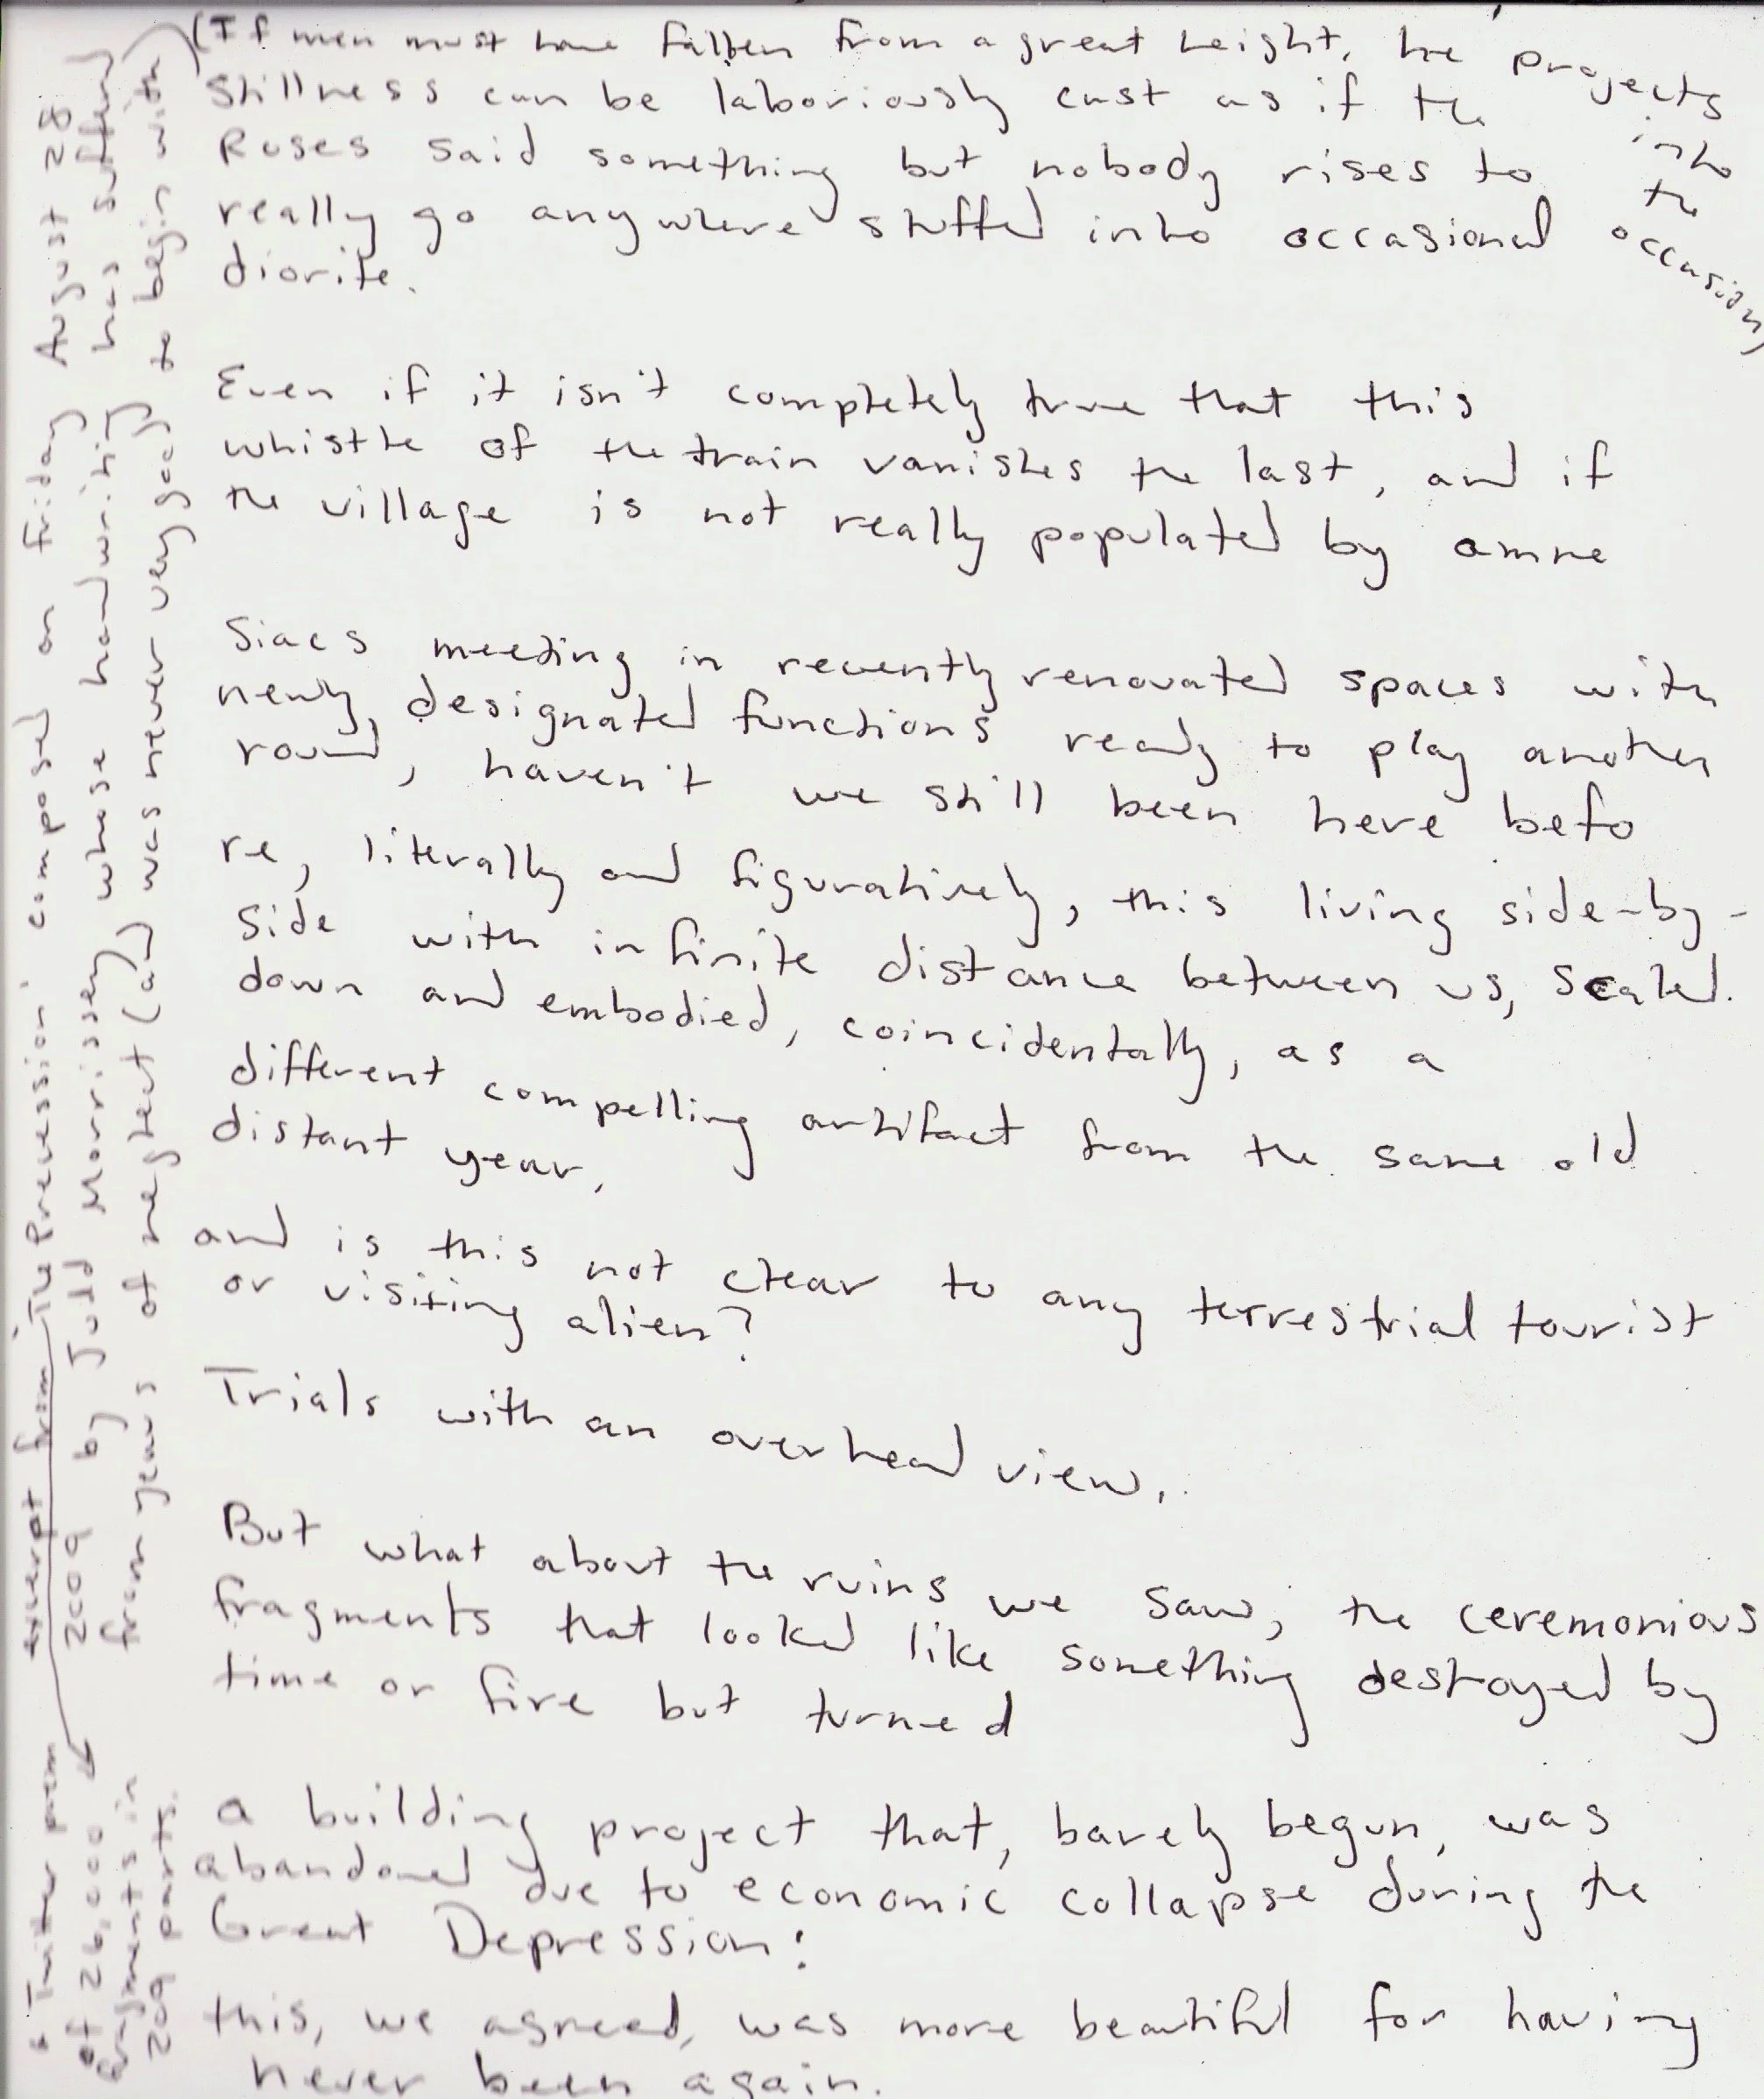 (If men must have fallen from a great height, he projects
into
the
occasion)
Stillness can be laboriously cast as if the
Roses said something but nobody rises to
really go anywhere stuffed into occasional
diorite.
Even if it isn't completely true that this
whistle of the train vanishes the last, and if
the village is not really populated by amne
siacs meeting in recently renovated spaces with
newly designated functions ready to play another
round, haven't we still been here befo
re, literally and figuratively, this living side-by-
side with infinite distance between us, scaled
down and embodied, coincidentally, as a
different compelling artifact from the same old
distant year,
and is this not clear to any terrestrial tourist
or visiting alien?
Trials with an overhead view,
But what about the ruins we saw, the ceremonious
fragments that looked like something destroyed by
time or fire but turned
a building project that, barely begun, was
abandoned due to economic collapse during the
Great Depression:
this, we agreed, was more beautiful for having
never been again.
excerpt from 'The Precession' composed on Friday August 28
2009 by Judd Morrissey whose handwriting has suffered
from years of neglect (and was never very good to begin with)
a Twitter poem
of 26,000
fragments in
209 parts.